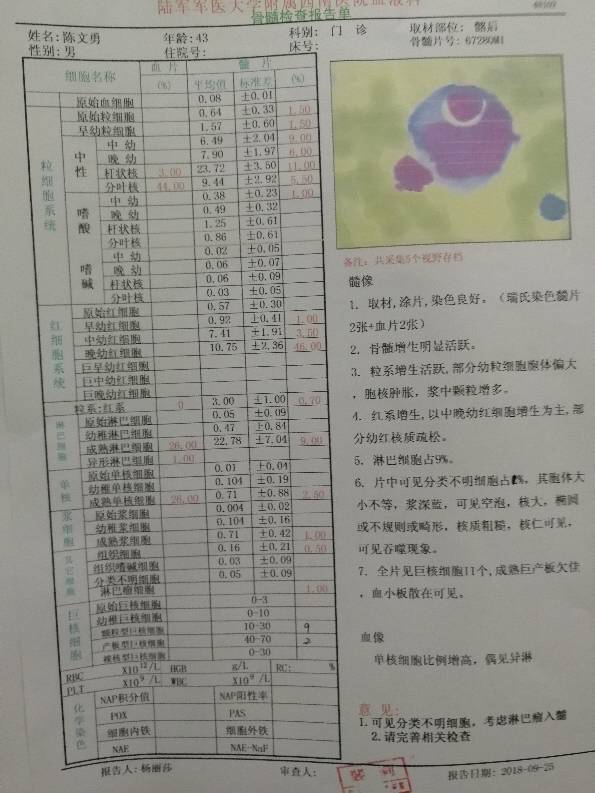 陆军军医大学附属西南医院血液科
骨髓检查报告单
姓名:陈文勇 年龄:43 科别: 门 诊 取材部位: 髂后
性别:男 住院号: 床号: 骨髓片号: 67280M1
细胞名称 血 片 髓 片
(%) 平均值 标准差 (%)
粒细胞系统
原始血细胞 0.08 ±0.01
原始粒细胞 0.64 ±0.33 1.50
早幼粒细胞 1.57 ±0.60 1.50
中性 中 幼 6.49 ±2.04 9.00
晚 幼 7.90 ±1.97 6.00
杆状核 3.00 23.72 ±3.50 11.00
分叶核 44.00 9.44 ±2.92 5.50
嗜酸 中 幼 0.38 ±0.23 1.00
晚 幼 0.49 ±0.32
杆状核 1.25 ±0.61
分叶核 0.86 ±0.61
嗜碱 中 幼 0.02 ±0.05
晚 幼 0.06 ±0.07
杆状核 0.06 ±0.09
分叶核 0.03 ±0.05
红细胞系统
原始红细胞 0.57 ±0.30
早幼红细胞 0.92 ±0.41 1.00
中幼红细胞 7.41 ±1.91 3.50
晚幼红细胞 10.75 ±2.36 46.00
巨早幼红细胞
巨中幼红细胞
巨晚幼红细胞
粒系:红系 0 3.00 ±1.00 0.70
淋巴细胞
原始淋巴细胞 0.05 ±0.09
幼稚淋巴细胞 0.47 ±0.84
成熟淋巴细胞 26.00 22.78 ±7.04 9.00
异形淋巴细胞 1.00
单核
原始单核细胞 0.01 ±0.04
幼稚单核细胞 0.104 ±0.19
成熟单核细胞 26.00 0.71 ±0.88 2.50
浆细胞
原始浆细胞 0.004 ±0.02
幼稚浆细胞 0.104 ±0.16
成熟浆细胞 0.71 ±0.42 1.00
其它细胞
组织细胞 0.16 ±0.21 0.50
组织嗜碱细胞 0.03 ±0.09
分类不明细胞 0.05 ±0.09
淋巴瘤细胞 1.00
巨核细胞
原始巨核细胞 0-3
幼稚巨核细胞 0-10
颗粒型巨核细胞 10-30 9
产板型巨核细胞 40-70 2
裸核型巨核细胞 0-30
RBC X10¹²/L HGB g/L RC: %
PLT X10⁹/L WBC X10⁹/L
化学染色
NAP积分值 NAP阳性率
POX PAS
细胞内铁 细胞外铁
NAE NAE-NaF
备注: 共采集5个视野存档
髓像
1. 取材,涂片,染色良好。（瑞氏染色髓片
2张+血片2张）
2. 骨髓增生明显活跃。
3. 粒系增生活跃,部分幼粒细胞胞体偏大
，胞核肿胀，浆中颗粒增多。
4. 红系增生,以中晚幼红细胞增生为主,部
分幼红核质疏松。
5. 淋巴细胞占9%。
6. 片中可见分类不明细胞占1%，其胞体大
小不等，浆深蓝，可见空泡，核大，椭圆
或不规则或畸形，核质粗糙，核仁可见，
可见吞噬现象。
7. 全片见巨核细胞11个,成熟巨产板欠佳
，血小板散在可见。
血像
单核细胞比例增高，偶见异淋
意 见:
1.可见分类不明细胞，考虑淋巴瘤入髓
2.请完善相关检查
报告人: 杨丽莎 审查人: 报告日期: 2018-09-25